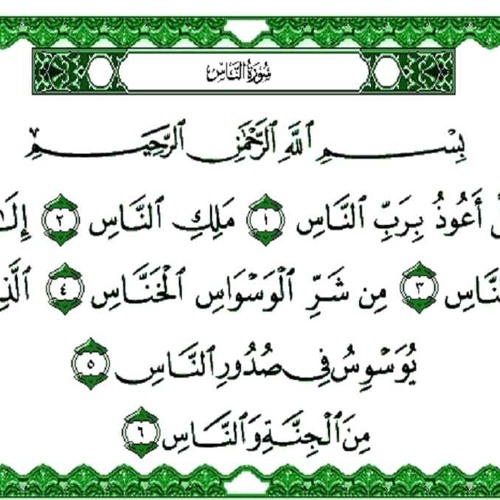 سُورَةُ النَّاسِ
بِسْمِ اللَّهِ الرَّحْمَٰنِ الرَّحِيمِ
أَعُوذُ بِرَبِّ النَّاسِ ١ مَلِكِ النَّاسِ ٢ إِلَٰ
نَّاسِ ٣ مِن شَرِّ الْوَسْوَاسِ الْخَنَّاسِ ٤ الَّذِ
يُوَسْوِسُ فِي صُدُورِ النَّاسِ ٥
مِنَ الْجِنَّةِ وَالنَّاسِ ٦